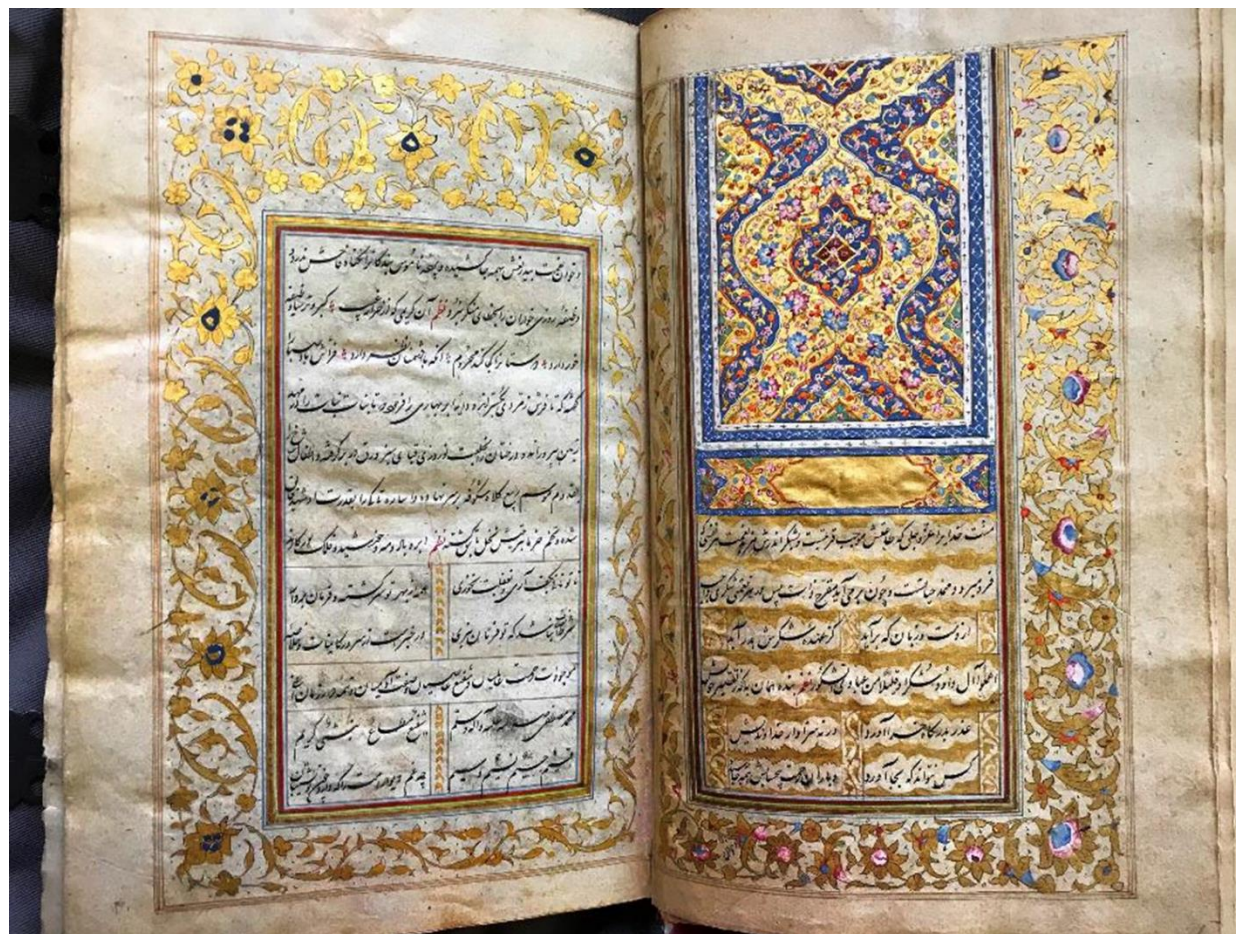 منت خدایرا عز و جل که طاعتش موجب قربتست و بشکر اندرش مزید نعمت هر نفسی که
فرو میرود ممد حیاتست و چون بر می آید مفرح ذات پس در هر نفسی شکری واجب
از دست و زبان که برآید کز عهده شکرش بدر آید
اعملوا آل داود شکرا و قلیلا من عبادی الشکور نظم بنده همان به که ز تقصیر خویش
عذر بدرگاه خدا آورد ورنه سزاوار خداوندیش
کس نتواند که بجا آورد باران رحمت بیحسابش همه را
و خوان نعمت بیدریغش همه جا کشیده و پرده ناموس بندگان بگناه فاحش ندرد
و وظیفه روزی خواران را بخطای منکر نبرد نظم ای کریمی که از خزانه غیب گبر و ترسا وظیفه
خور داری دوستانرا کجا کنی محروم تو که با دشمنان نظر داری فراش باد صبا را
گفته که تا فرش زمردی بگستراند و دایه ابر بهاری را فرموده تا بنات نبات را در مهد
زمین بپروراند و درختان را بخلعت نوروزی قبای سبز ورق در بر گرفته و اطفال شاخ را
بقدوم موسم ربیع کلاه شکوفه بر سر نهاده و عصاره بقدرت او شهد
شده و تخم خرما بتربیتش نخل باسق گشته نظم ابر و باد و مه و خورشید و فلک در کارند
تا تو نانی بکف آری و بغفلت نخوری همه از بهر تو سرگشته و فرمان بردار
شرط انصاف نباشد که تو فرمان نبری در خبرست از سرور کاینات و خلاصه
موجودات رحمت عالمیان و شفیع صفوت آدمیان و تتمه دور زمان
محمد مصطفی صلی الله علیه و آله و سلم شفیع مطاع نبی کریم
قسیم جسیم نسیم وسیم چه غم دیوار امت را که دارد چون تو پشتیبان